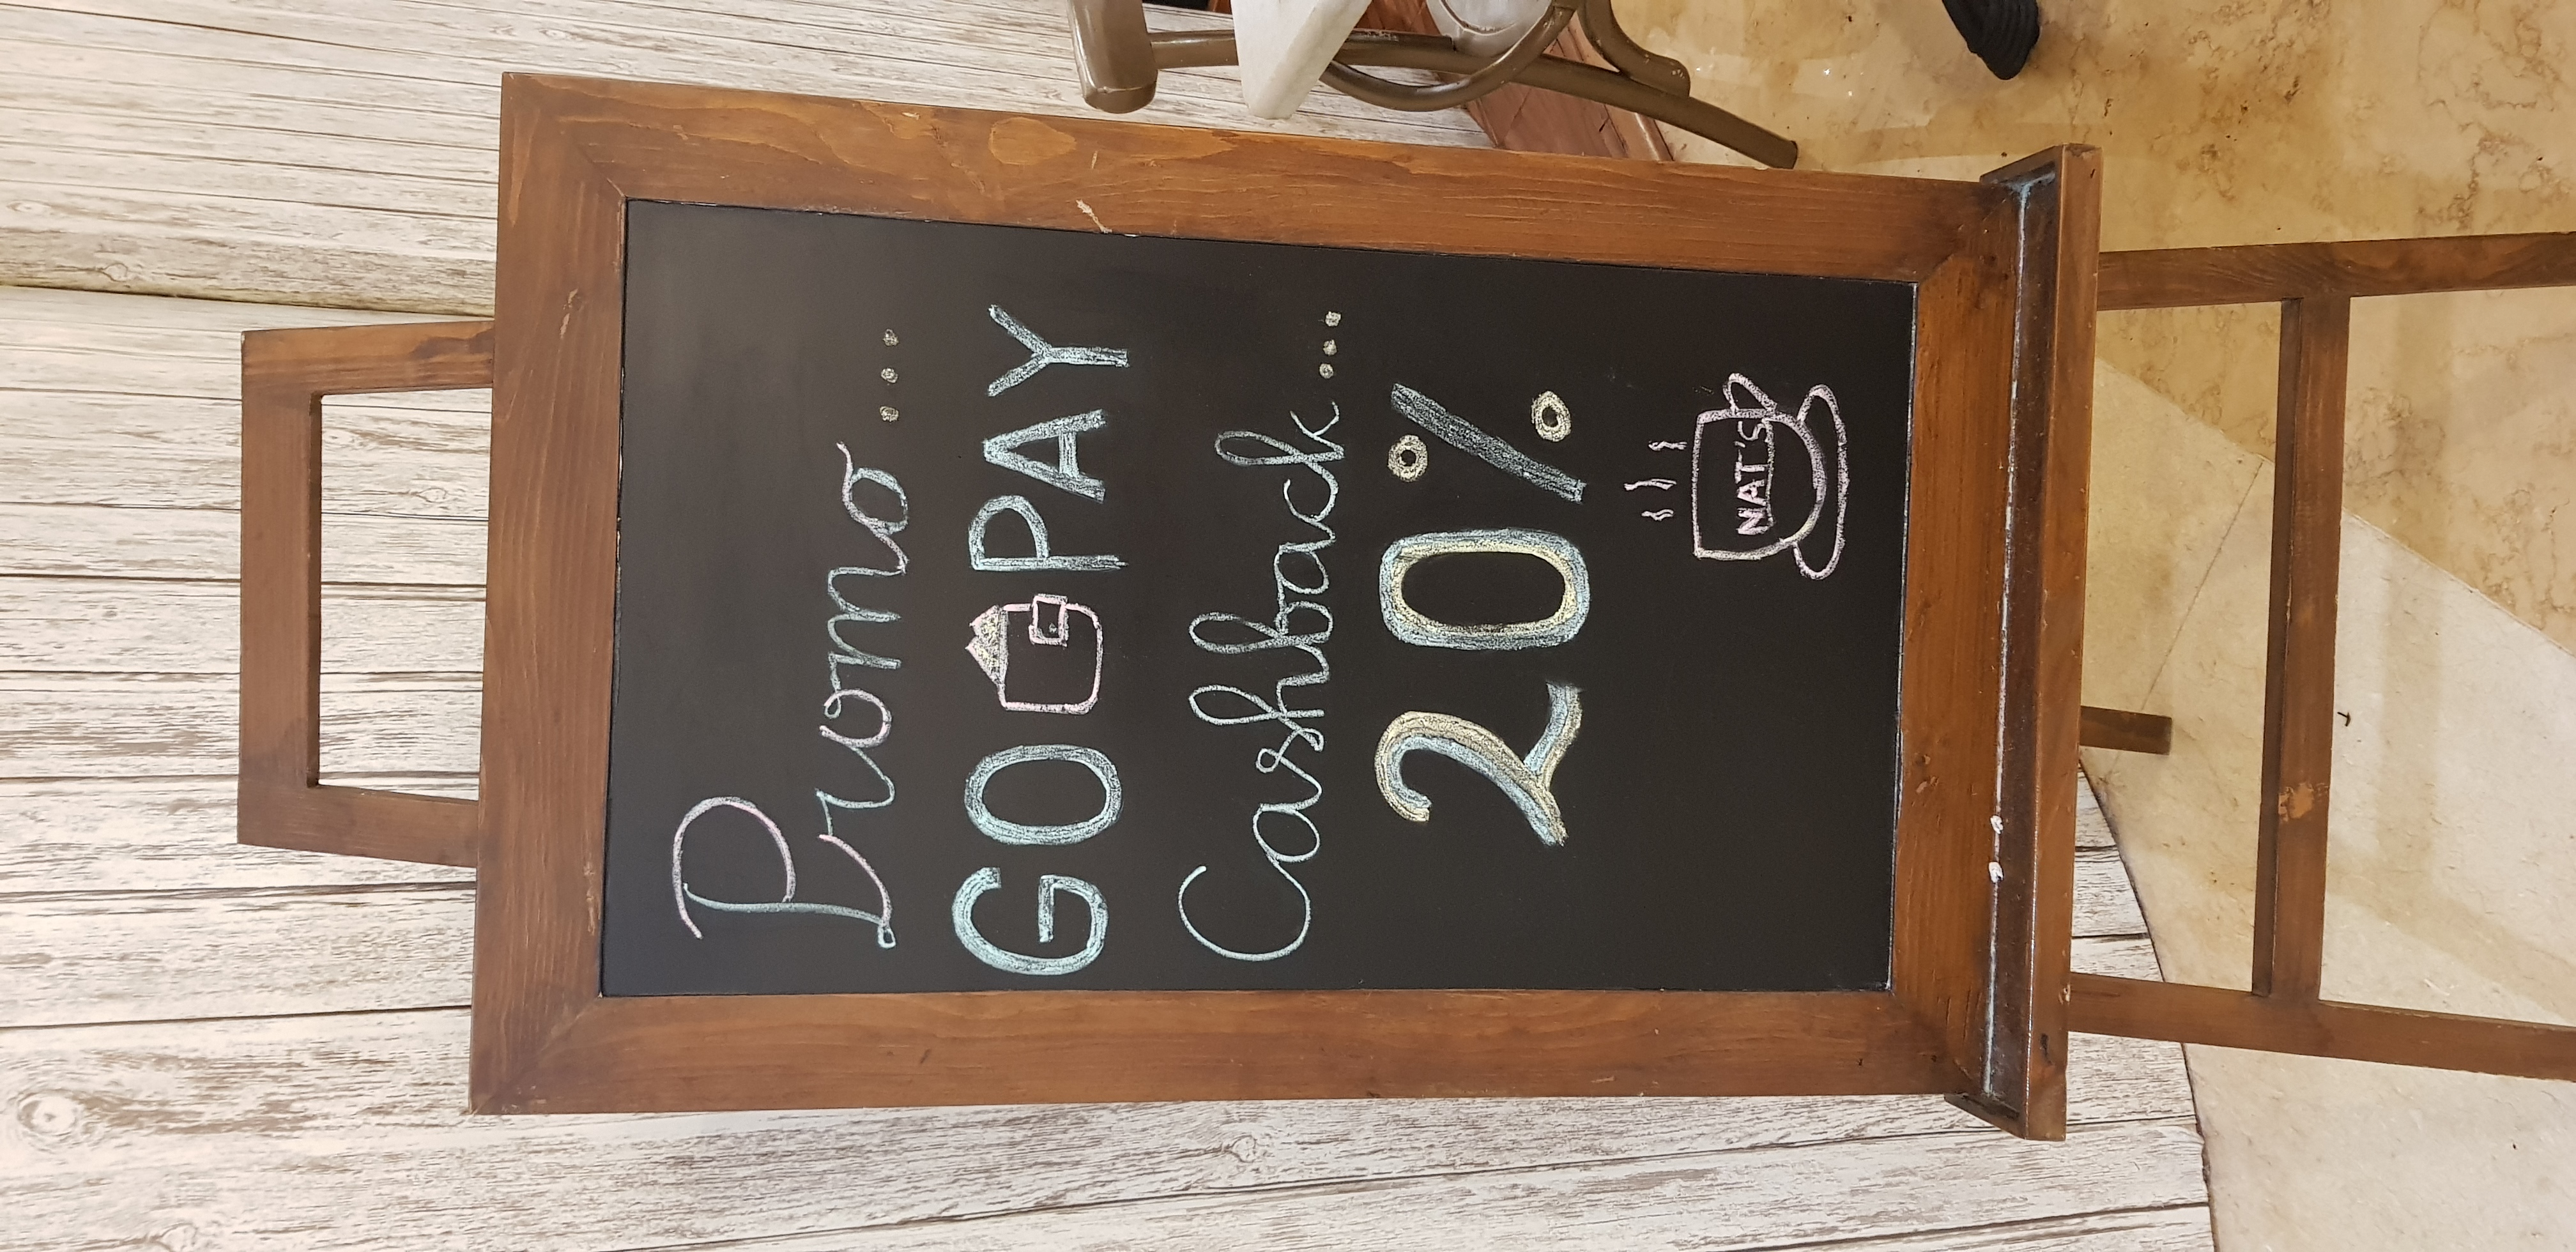 Promo...
GO PAY
Cashback...
20%
NAT'S